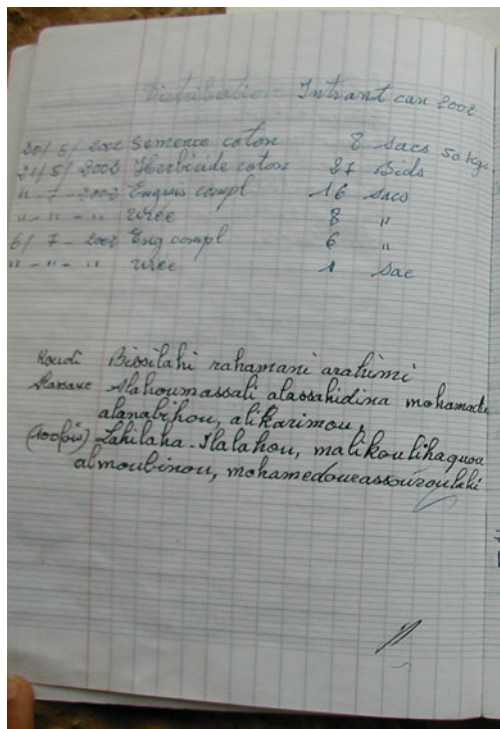 Distribution Intrant can 2002
20/5/2002 Semence coton 8 Sacs 50 kgs.
21/5/2002 Herbicide coton 27 Bids
" - 7 - 2002 Engrais compl 16 Sacs
" - " - " urée 8 "
6/ 7 - 2002 Eng compl 6 "
" - " - " urée 1 Sac
Koudi Bissilahi rahamani arahimi
Alahoumassali alassahidina mohamadi
alanabihou, alikarimou,
(100 fois) Lahilaha. Ilalahou, malikoulihaquou
almoubinou, mohamedouéassouroulahi